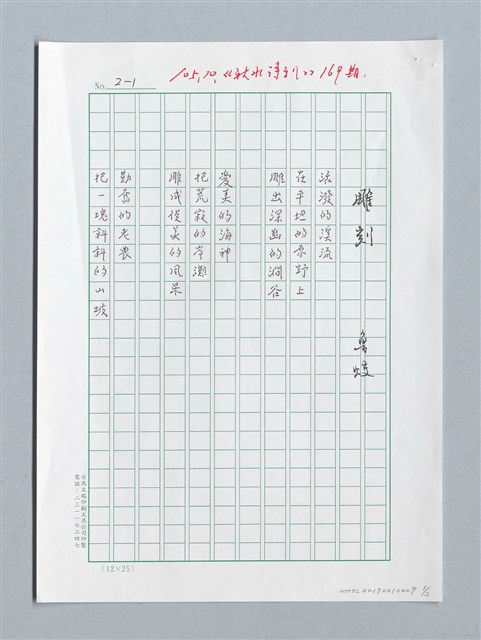 105.10.《秋水詩刊》169期.
No. 2-1
雕刻
魯蛟
活潑的溪流
在平坦的原野上
雕出深幽的澗谷
愛美的海神
把荒寂的岸灘
雕成俊美的風景
勤奮的老農
把一塊斜斜的山坡
電話:二三一一七三四七
(12×25)
NMTL20190210009 1/2